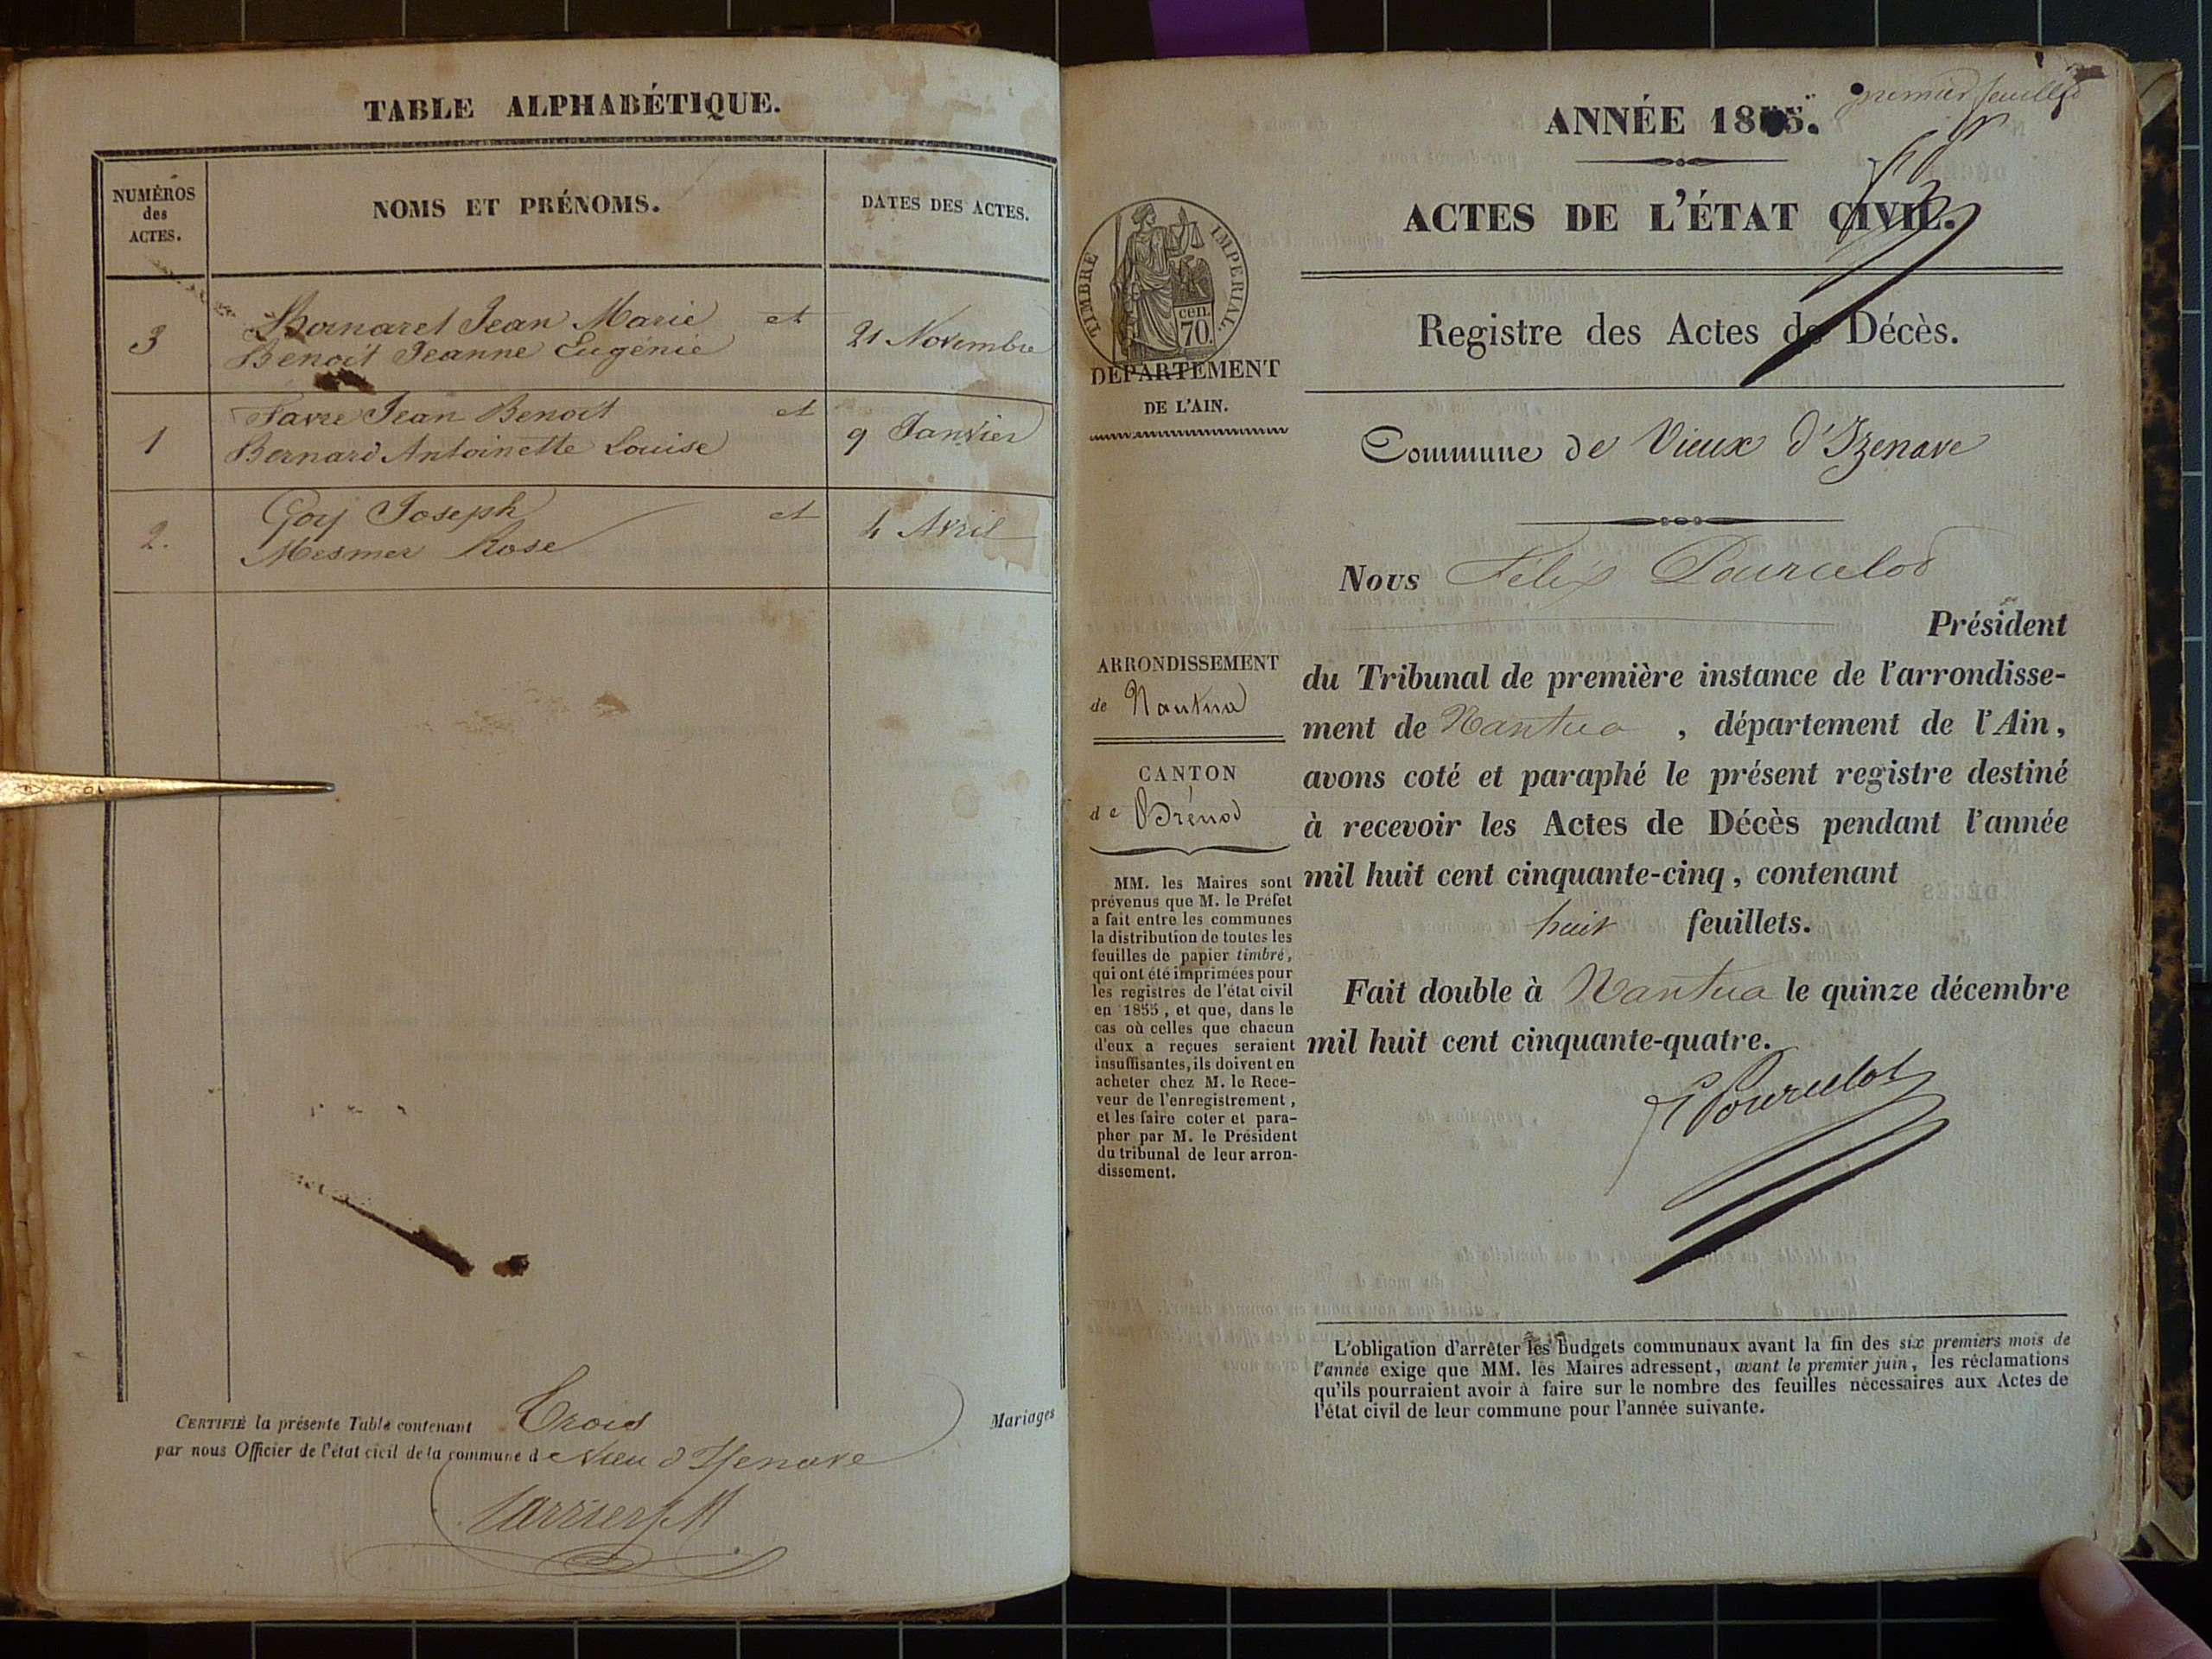 TABLE ALPHABÉTIQUE.
NUMÉROS
des
ACTES.
NOMS ET PRÉNOMS.
DATES DES ACTES.
3
Jean Marie et
Benoit Jeanne Eugénie
21 Novembre
1
Favre Jean Benoit et
Bernard Antoinette Louise
9 Janvier
2.
Goy Joseph et
Mesmer Rose
4 Avril
CERTIFIÉ la présente Table contenant Trois Mariages
par nous Officier de l'état civil de la commune de Vieu d'Isenave
premier feuillet
ANNÉE 1855.
ACTES DE L'ÉTAT CIVIL.
Registre des Actes de Décès.
TIMBRE IMPERIAL
cen.
70.
DÉPARTEMENT
DE L'AIN.
Commune de Vieux d'Izenave
Nous Félix Pourcelot
Président
du Tribunal de première instance de l'arrondisse-
ment de Nantua, département de l'Ain,
avons coté et paraphé le présent registre destiné
à recevoir les Actes de Décès pendant l'année
mil huit cent cinquante-cinq, contenant
huit feuillets.
Fait double à Nantua le quinze décembre
mil huit cent cinquante-quatre.
Pourcelot
ARRONDISSEMENT
de Nantua
CANTON
de Brénod
MM. les Maires sont
prévenus que M. le Préfet
a fait entre les communes
la distribution de toutes les
feuilles de papier timbré,
qui ont été imprimées pour
les registres de l'état civil
en 1855, et que, dans le
cas où celles que chacun
d'eux a reçues seraient
insuffisantes, ils doivent en
acheter chez M. le Rece-
veur de l'enregistrement,
et les faire coter et para-
pher par M. le Président
du tribunal de leur arron-
dissement.
L'obligation d'arrêter les Budgets communaux avant la fin des six premiers mois de
l'année exige que MM. les Maires adressent, avant le premier juin, les réclamations
qu'ils pourraient avoir à faire sur le nombre des feuilles nécessaires aux Actes de
l'état civil de leur commune pour l'année suivante.